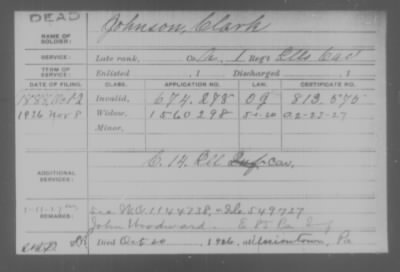 DEAD
NAME OF SOLDIER: Johnson, Clark
SERVICE: Late rank, Co. A, 1 Reg't Ills Cav
TERM OF SERVICE: Enlisted , 1 Discharged , 1
DATE OF FILING. CLASS. APPLICATION NO. LAW. CERTIFICATE NO.
1888 Invalid, 674.278 813.575
1926 Nov 8 Widow, 1560298 5-1-20 A-2-23-27
Minor,
ADDITIONAL SERVICES: C. 14, Ill Inf. Cav.
REMARKS: See W.O. 1144738, + 549727
John Woodward E Pa Inf
Died Oct 1926, at Uniontown, Pa